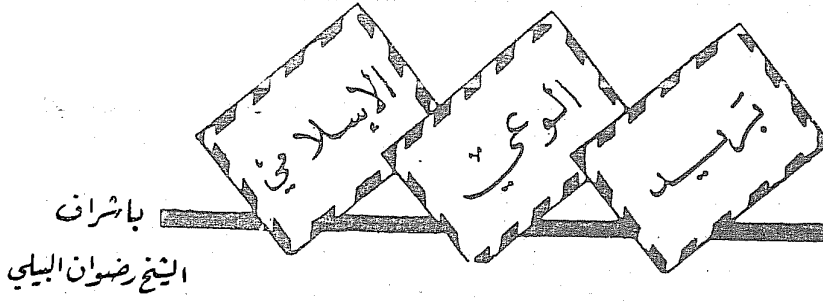 بريد الوعي الإسلامي
باشراف
الشيخ رضوان البيلي